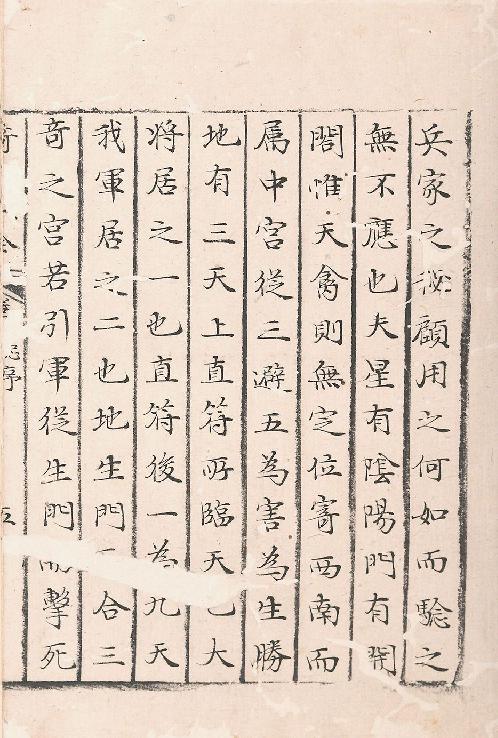 兵家之秘顧用之何如而騐之
無不應也夫星有陰陽門有開
閤惟天禽則無定位寄西南而
属中宮從三避五為害為生勝
地有三天上直符所臨天乙大
将居之一也直符後一為九天
我軍居之二也地生門合三
竒之宮若引軍從生門擊死
序